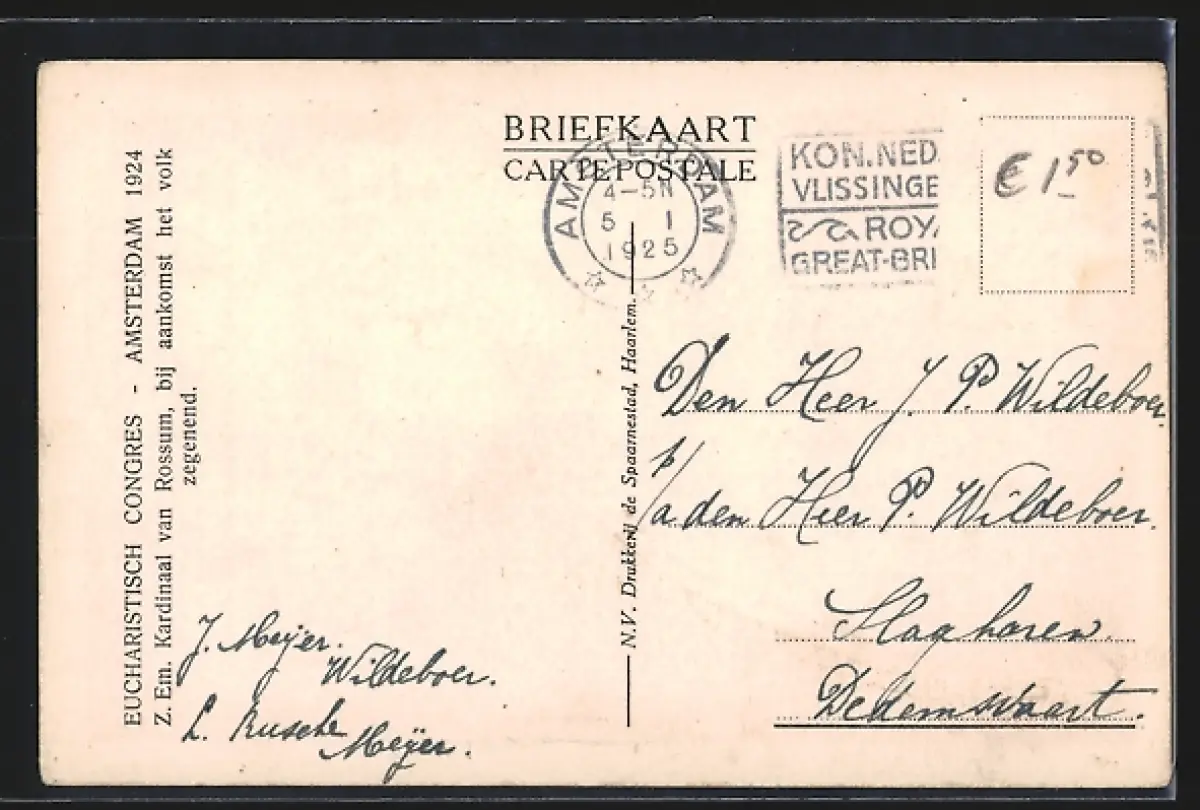 BRIEFKAART
CARTE POSTALE
AMSTERDAM
4-5N
5 1
1925
KON.NED.
VLISSINGE
ROYA
GREAT-BRI
€ 1,50
EUCHARISTISCH CONGRES - AMSTERDAM 1924
Z. Em. Kardinaal van Rossum, bij aankomst het volk
zegenend.
N.V. Drukkerij de Spaarnestad, Haarlem.
Den Heer J. P. Wildeboer
p/a den Heer P. Wildeboer.
Slagharen.
Dedemsvaart.
J. Meijer.
Wildeboer.
L. Rusche
Meijer.